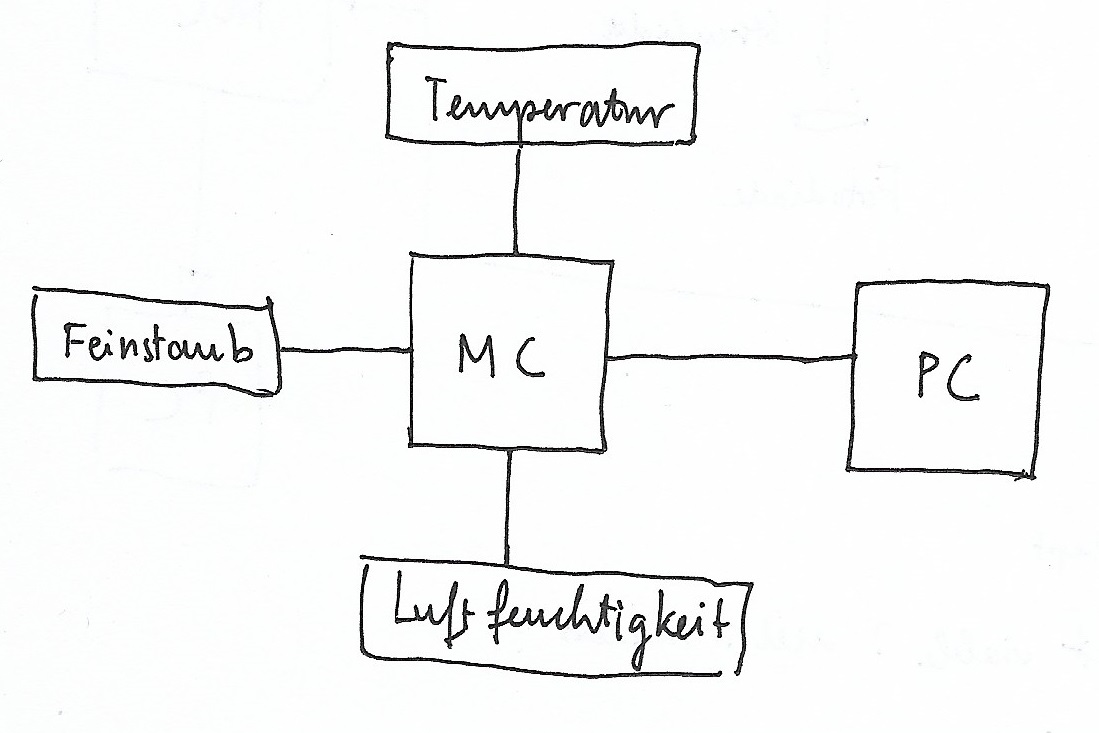 Temperatur
Feinstaub
MC
PC
Luftfeuchtigkeit